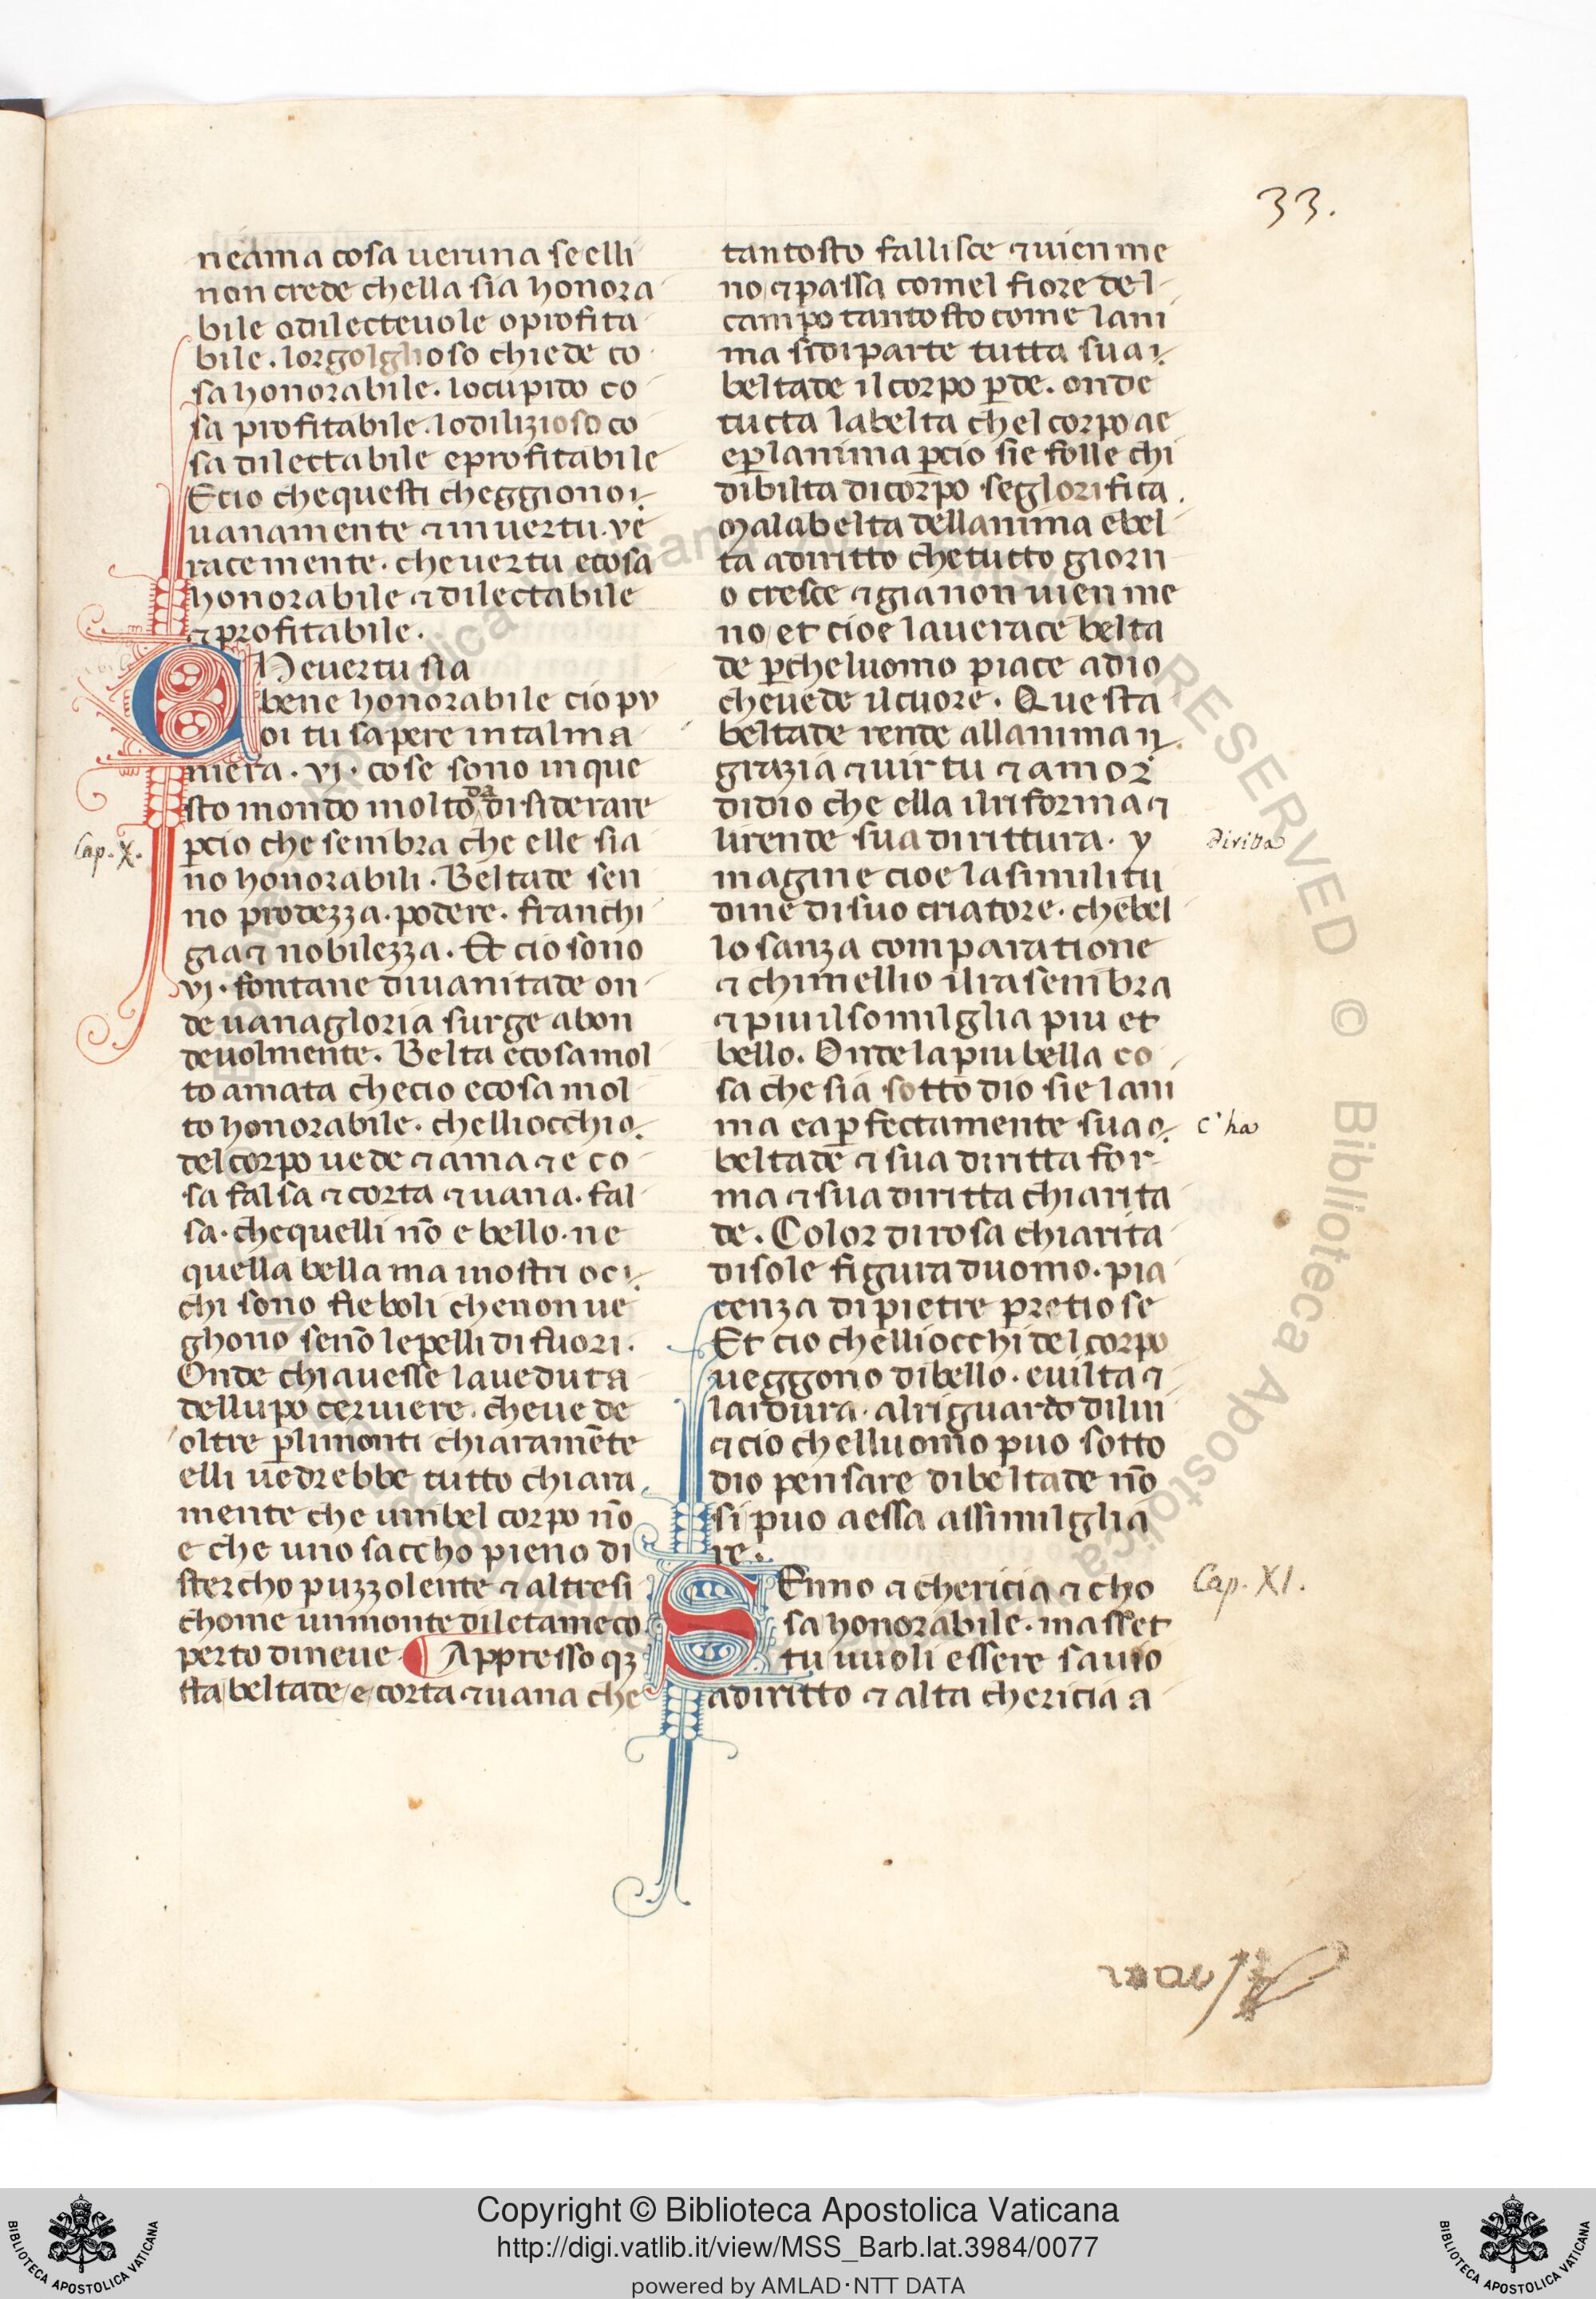 33.
ne ama cosa ueruna se elli
non crede chella sia honora
bile odilecteuole oprofita
bile. lorgolglioso chiede co
sa honorabile. locupido co
sa profitabile. lodilizioso co
sa dilectabile eprofitabile
Ecio chequesti cheggiono
uanamente ⁊ inuertu. ve
racemente. cheuertu ecosa
honorabile ⁊ dilectabile
⁊ profitabile.
Cheuertu sia
bene honorabile cio pv
oi tu sapere intal ma
niera. vj. cose sono inque
sto mondo molto da disiderare
p̱cio che sembra che elle sia
Cap. X.
no honorabili. Beltade sen
no prodezza. podere. franchi
gia ⁊ nobilezza. Et cio sono
vj. fontane diuanitade on
de uanagloria surge abon
deuolmente. Belta ecosa mol
to amata checio ecosa mol
to honorabile. chelliocchio
del corpo uede ⁊ ama ⁊ e co
sa falsa ⁊ corta ⁊ uana. fal
sa. chequelli nō e bello. ne
quella bella ma inostri oc
chi sono fieboli chenon ue
ghono senō lepelli di fuori.
Onde chi auesse laueduta
dellupo ceruiere. cheue de
oltre p̱limonti chiaramēte
elli uedrebbe tutto chiara
mente che unbel corpo nō
e che uno saccho pieno di
stercho puzzolente ⁊ altresi
chome unmonte diletame co
perto dineue ¶ Appresso qȝ
sta beltade e corta ⁊ uana che
tantosto fallisce ⁊ uien me
no ⁊ passa comel fiore del
campo tantosto come lani
ma sidiparte tutta sua
beltade il corpo p̱de. onde
tucta labelta chel corpo ae
ep̱lanima p̱cio sie folle chi
dibilta dicorpo seglorifica.
Malabelta dellanima ebel
ta adiritto che tutto giorn
o cresce ⁊ gia non uien me
no et cioe lauerace belta
de p̱cheluomo piace adio
cheuede ilcuore. Questa
beltade rende allanima
grazia ⁊ uirtu ⁊ amor
didio che ella ilriforma ⁊
lirende sua dirittura. y
diritta
magine cioe lasimilitu
dine di suo criatore. chebel
lo sanza comparatione
⁊ chimellio ilrasembra
⁊ piu ilsomilglia piu et
bello. Onde lapiu bella co
sa che sia sotto dio sie lani
ma eap̱fectamente sua
c'ha
beltade ⁊ sua diritta for
ma ⁊ sua diritta chiarita
de. Color dirosa chiarita
disole figura duomo. pia
cenza di pietre pretiose
Et cio chelliocchi del corpo
ueggono dibello. euilta ⁊
laidura. alriguardo dilui
⁊ cio chelluomo puo sotto
dio pensare dibeltade nō
si puo aessa assimilglia
re.
Senno ⁊ chericia ⁊ cho
Cap. XI.
sa honorabile. masset
tu uuoli essere sauio
adiritto ⁊ alta chericia a
Copyright © Biblioteca Apostolica Vaticana
http://digi.vatlib.it/view/MSS_Barb.lat.3984/0077
powered by AMLAD·NTT DATA
BIBLIOTECA APOSTOLICA VATICANA
BIBLIOTECA APOSTOLICA VATICANA